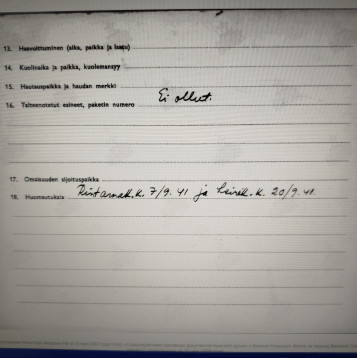 13. Haavoittuminen (aika, paikka ja laatu)
14. Kuolinaika ja paikka, kuolemansyy
15. Hautauspaikka ja haudan merkki
16. Talteenotetut esineet, paketin numero Ei ollut.
17. Omaisuuden sijoituspaikka
18. Huomautuksia Rintamak.k. 7/9.41 ja k. 20/9.41.